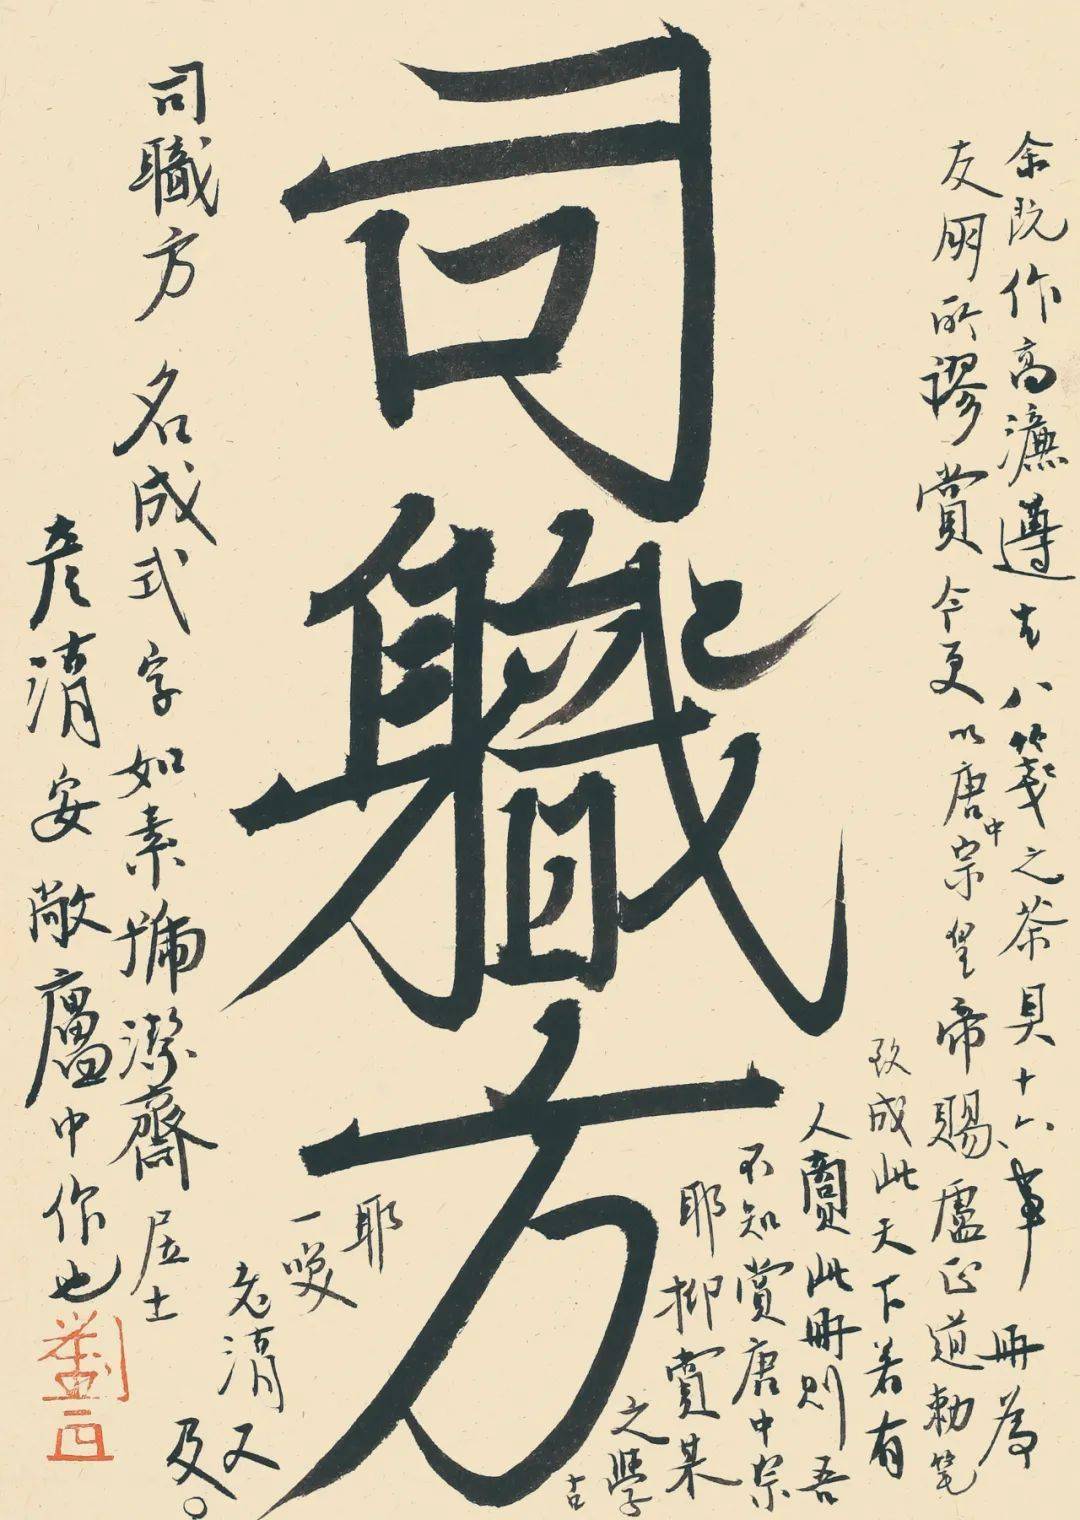 司職方
余既作高濂遵生八箋之茶具十六事冊為
友朋所謬賞今更以唐中宗皇帝賜盧正道勅笔
致成此天下若有
人賣此冊則吾
不知賞唐中宗
耶抑賞某
之學古
耶
一嘆
老清又
及。
司職方名成式字如素號潔齋居士
彦清安敞廬中作也